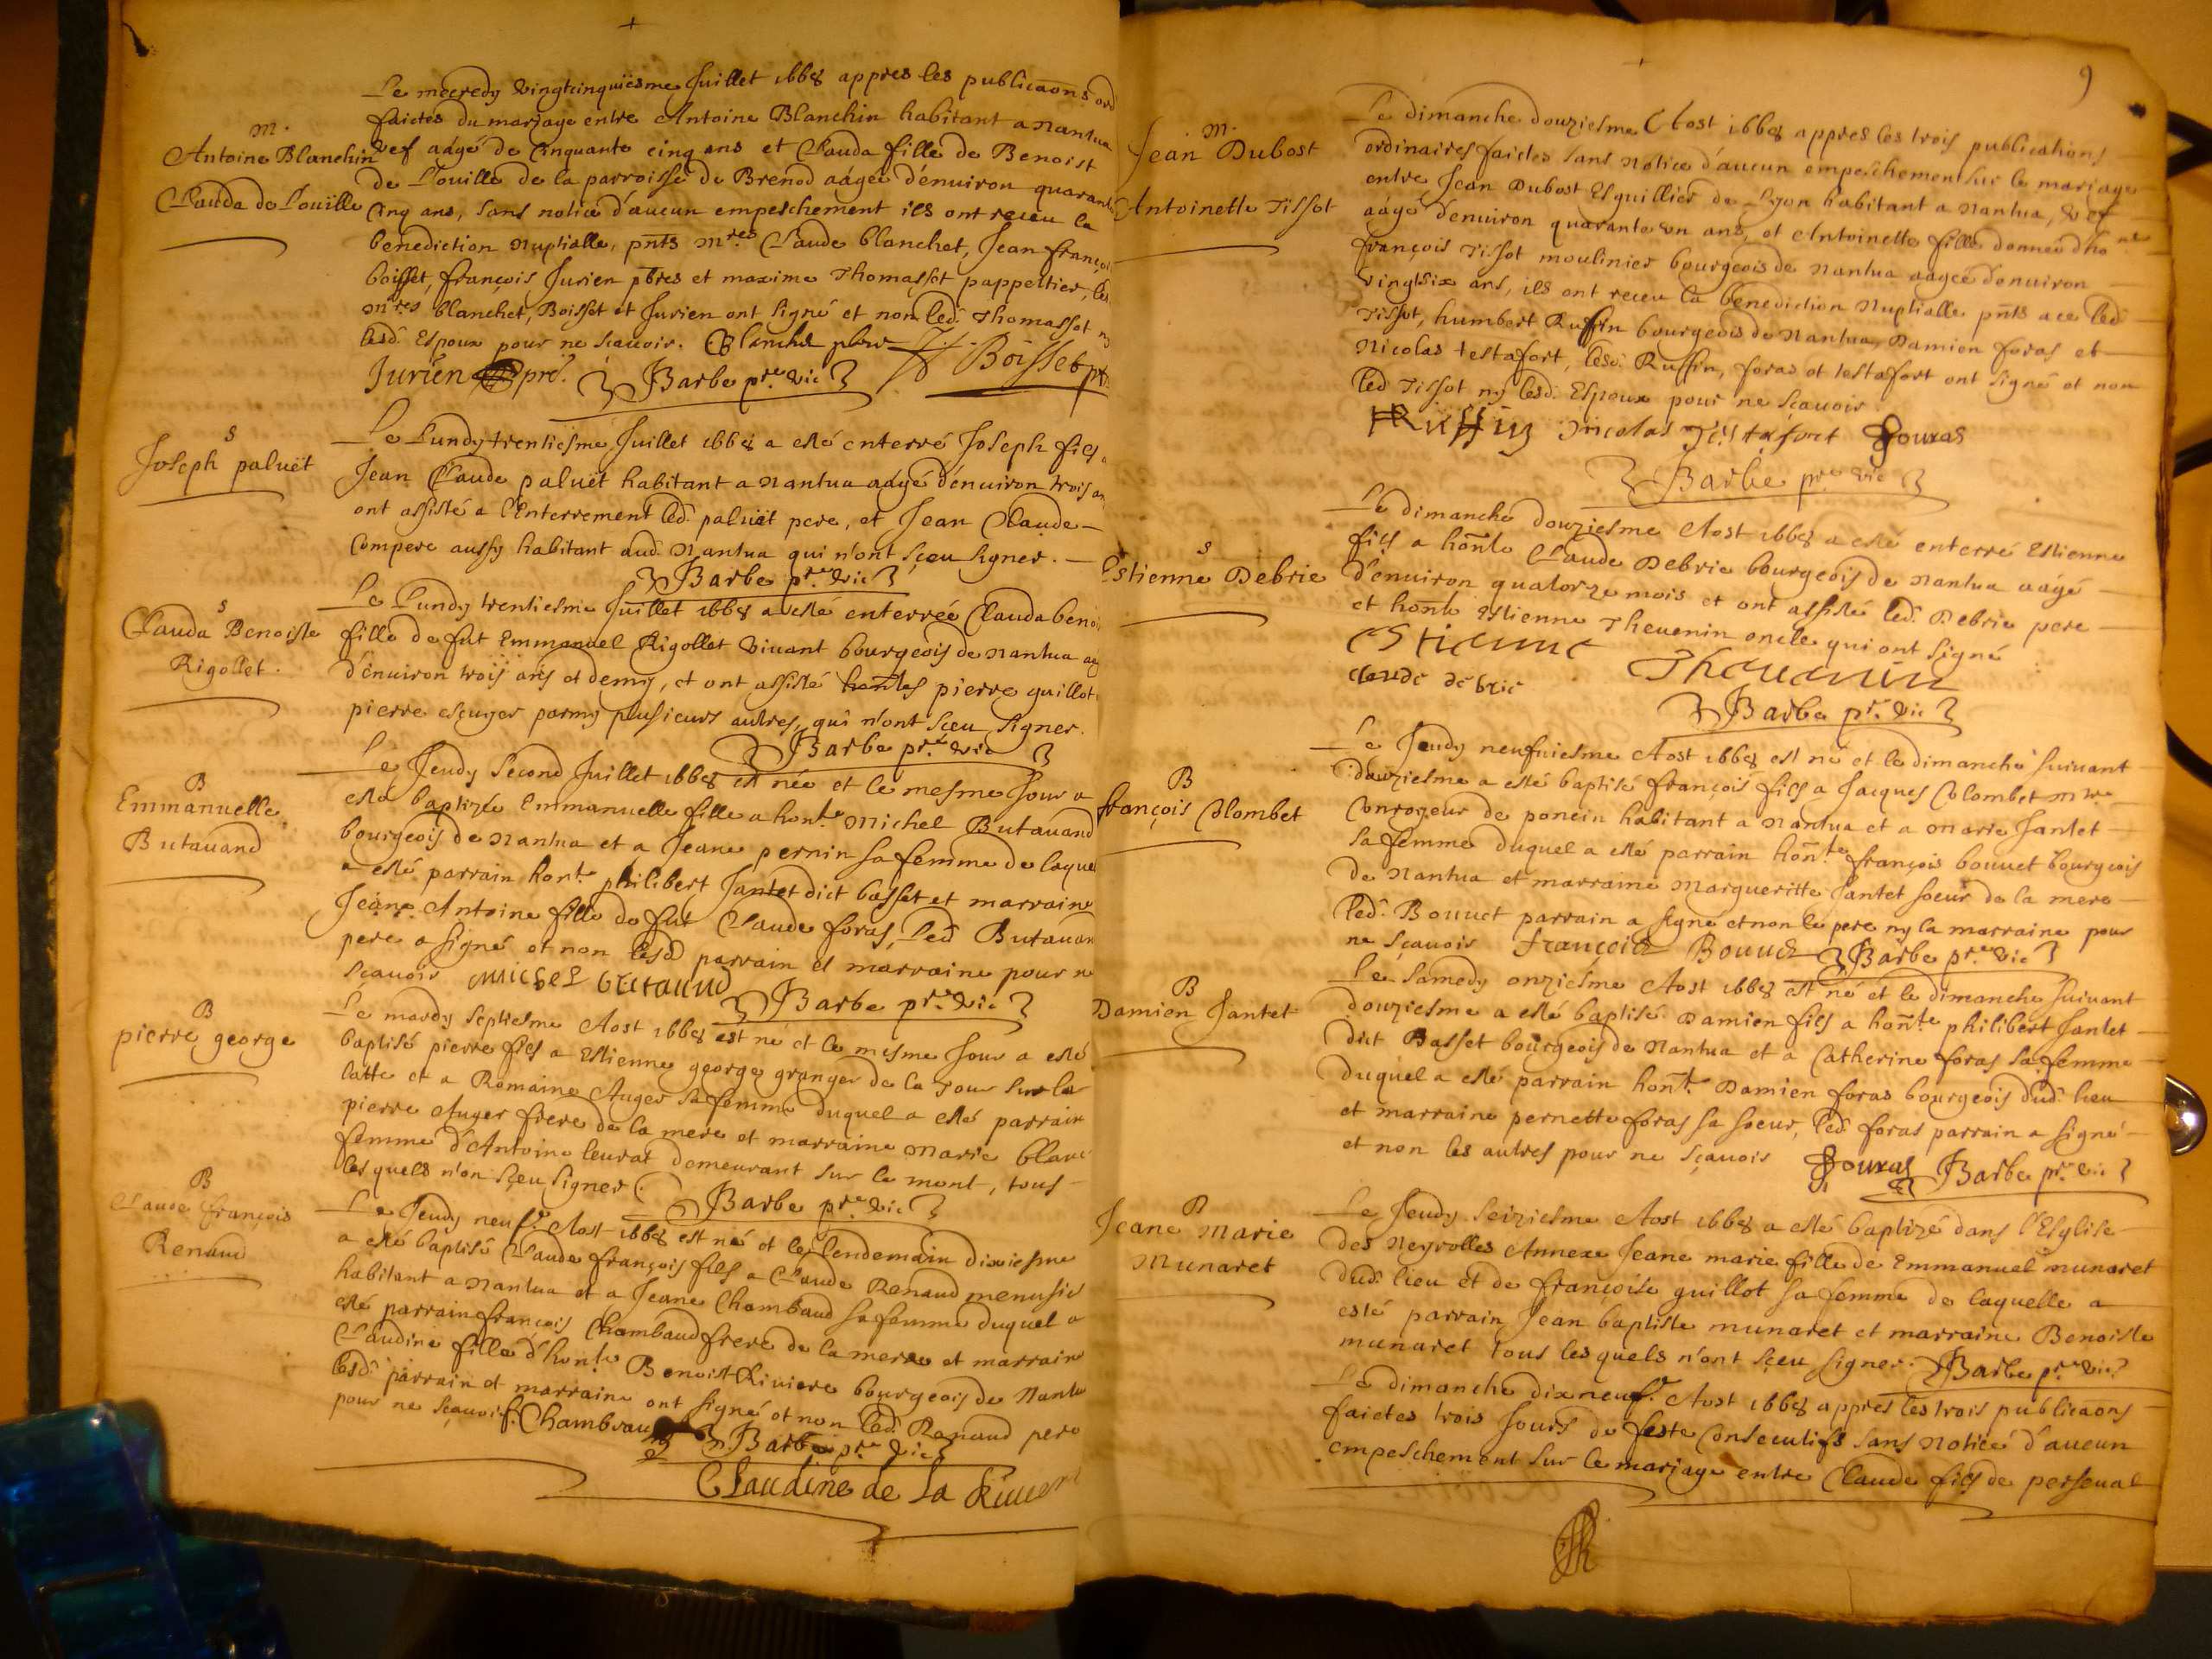 m.
Antoine Blanchin
Clauda de Louille
Le mecredy vingtcinquiesme Juillet 1668 appres les publicaons ord
faictes du mariage entre Antoine Blanchin habitant a Nantua
vef aagé de cinquante cinq ans et Clauda fille de Benoist
de Louille de la parroisse de Brenod aagée d'enuiron quarante
cinq ans, sans notice d'aucun empeschement ils ont receu la
benediction nuptialle, pnts mres Claude blanchet, Jean françoi
boisset, françois Jurien pbres et maxime Thomasset pappettier, les
mres blanchet, Boisset et Jurien ont signé et non led. Thomasset ny
lesd. Espoux pour ne scauoir. Blanchet pbre J. f. Boisset pb
Jurien pre. Barbe pre. vic
s
Joseph paluët
Le Lundy trentiesme Juillet 1668 a esté enterré Joseph fils a
Jean Claude paluët habitant a Nantua aagé d'enuiron trois an
ont assisté a l'Enterrement led. paluët pere, et Jean Claude
Compere aussy habitant aud. Nantua qui n'ont sceu signer.
Barbe pre. vic
s
Clauda Benoiste
Rigollet.
Le Lundy trentiesme Juillet 1668 a esté enterrée Clauda beno
fille de fut Emmanuel Rigollet viuant bourgeois de Nantua ag
d'enuiron trois ans et demy, et ont assisté pierre guillot
pierre escuyer parmy plusieurs autres, qui n'ont sceu signer.
Barbe pre. vic
B
Emmanuelle
Butauand
Le Jeudy second Juillet 1668 est née et le mesme Jour a
esté baptizée Emmanuelle fille a honte. Michel Butauand
bourgeois de Nantua et a Jeane pernin sa femme de laquel
a esté parrain honte. philibert Jantet dict basset et marraine
Jeane Antoine fille de fut Claude foras, Led. Butauan
pere a signé et non lesd parrain et marraine pour n
scauoir michel butauand
Barbe pre. vic
B
pierre george
Le mardy septiesme Aost 1668 est né et le mesme Jour a esté
baptisé pierre fils a Estienne george granger de la Tour sur la
latte et a Romaine Auger sa femme duquel a esté parrain
pierre Auger frere de la mere et marraine Marie blanc
femme d'Antoine leurat demeurant sur le mont, tous
lesquels n'on sceu signer. Barbe pre. vic
B
Claude françois
Renaud
Le Jeudy neufe. Aost 1668 est né et le lendemain dixiesme
a esté baptisé Claude françois fils a Claude Renaud menusie
habitant a Nantua et a Jeane Chambaud sa femme duquel a
esté parrain françois Chambaud frere de la mere et marraine
Claudine fille d'honte. Benoist Riuiere bourgeois de Nantu
lesd. parrain et marraine ont signé et non led. Renaud pere
pour ne scauoir. f. Chambeau
Barbe pre. vic
Claudine de la Riuiere
9
m.
Jean Dubost
Antoinette Tissot
Le dimanche douziesme Aost 1668 appres les trois publications
ordinaires faictes sans notice d'aucun empeschement sur le mariage
entre Jean Dubost Esguillier de Lyon habitant a Nantua, vef
aagé d'enuiron quarante un ans, et Antoinette fille donnée d'hone
françois Tissot moulinier bourgeois de Nantua aagée d'enuiron
vingtsix ans, ils ont receu la benediction nuptialle pnts a ce led.
Tissot, humbert Ruffin bourgeois de Nantua, Damien foras et
Nicolas testafort, lesd. Ruffin, foras et testafort ont signé et non
led Tissot ny lesd. Espoux pour ne scauoir.
HRuffin Nicolas Testafort fouras
Barbe pre vic
s
Estienne Debrie
Le dimanche douziesme Aost 1668 a esté enterré Estienne
fils a honle Claude Debrie bourgeois de Nantua aagé
d'enuiron quatorze mois et ont assisté led. Debrie pere
et honle Estienne Theuenin oncle qui ont signé
Estienne Theuenin
claude debrie
Barbe pre. vic
B
françois Colombet
Le Jeudy neufuiesme Aost 1668 est né et le dimanche suiuant
douziesme a esté baptisé françois fils a Jacques Colombet mre
Conroyeur de poncin habitant a Nantua et a Marie Jantet
sa femme duquel a esté parrain honte. françois bouuet bourgeois
de Nantua et marraine Margueritte Jantet soeur de la mere
led. Bouuet parrain a signé et non le pere ny la marraine pour
ne scauoir françois Bouuet Barbe pre. vic
B
Damien Jantet
Le samedy onziesme Aost 1668 est né et le dimanche suiuant
douziesme a esté baptisé Damien fils a honte philibert Jantet
dict Basset bourgeois de Nantua et a Catherine foras sa femme
duquel a esté parrain honte. Damien foras bourgeois dud. lieu
et marraine pernette foras sa soeur, led. foras parrain a signé
et non les autres pour ne scauoir fouras Barbe pre. vic
B
Jeane Marie
Munaret
Le Jeudy seiziesme Aost 1668 a esté baptizé dans l'Esglise
des Neyrolles Annexe Jeane marie fille de Emmanuel munaret
dud. lieu et de françoise guillot sa femme de laquelle a
esté parrain Jean baptiste munaret et marraine Benoiste
munaret tous lesquels n'ont sceu signer. Barbe pre. vic
Le dimanche dixneufe. Aost 1668 appres les trois publicaons
faictes trois Jours de feste consecutifs sans notice d'aucun
empeschement sur le mariage entre Claude fils de perseual